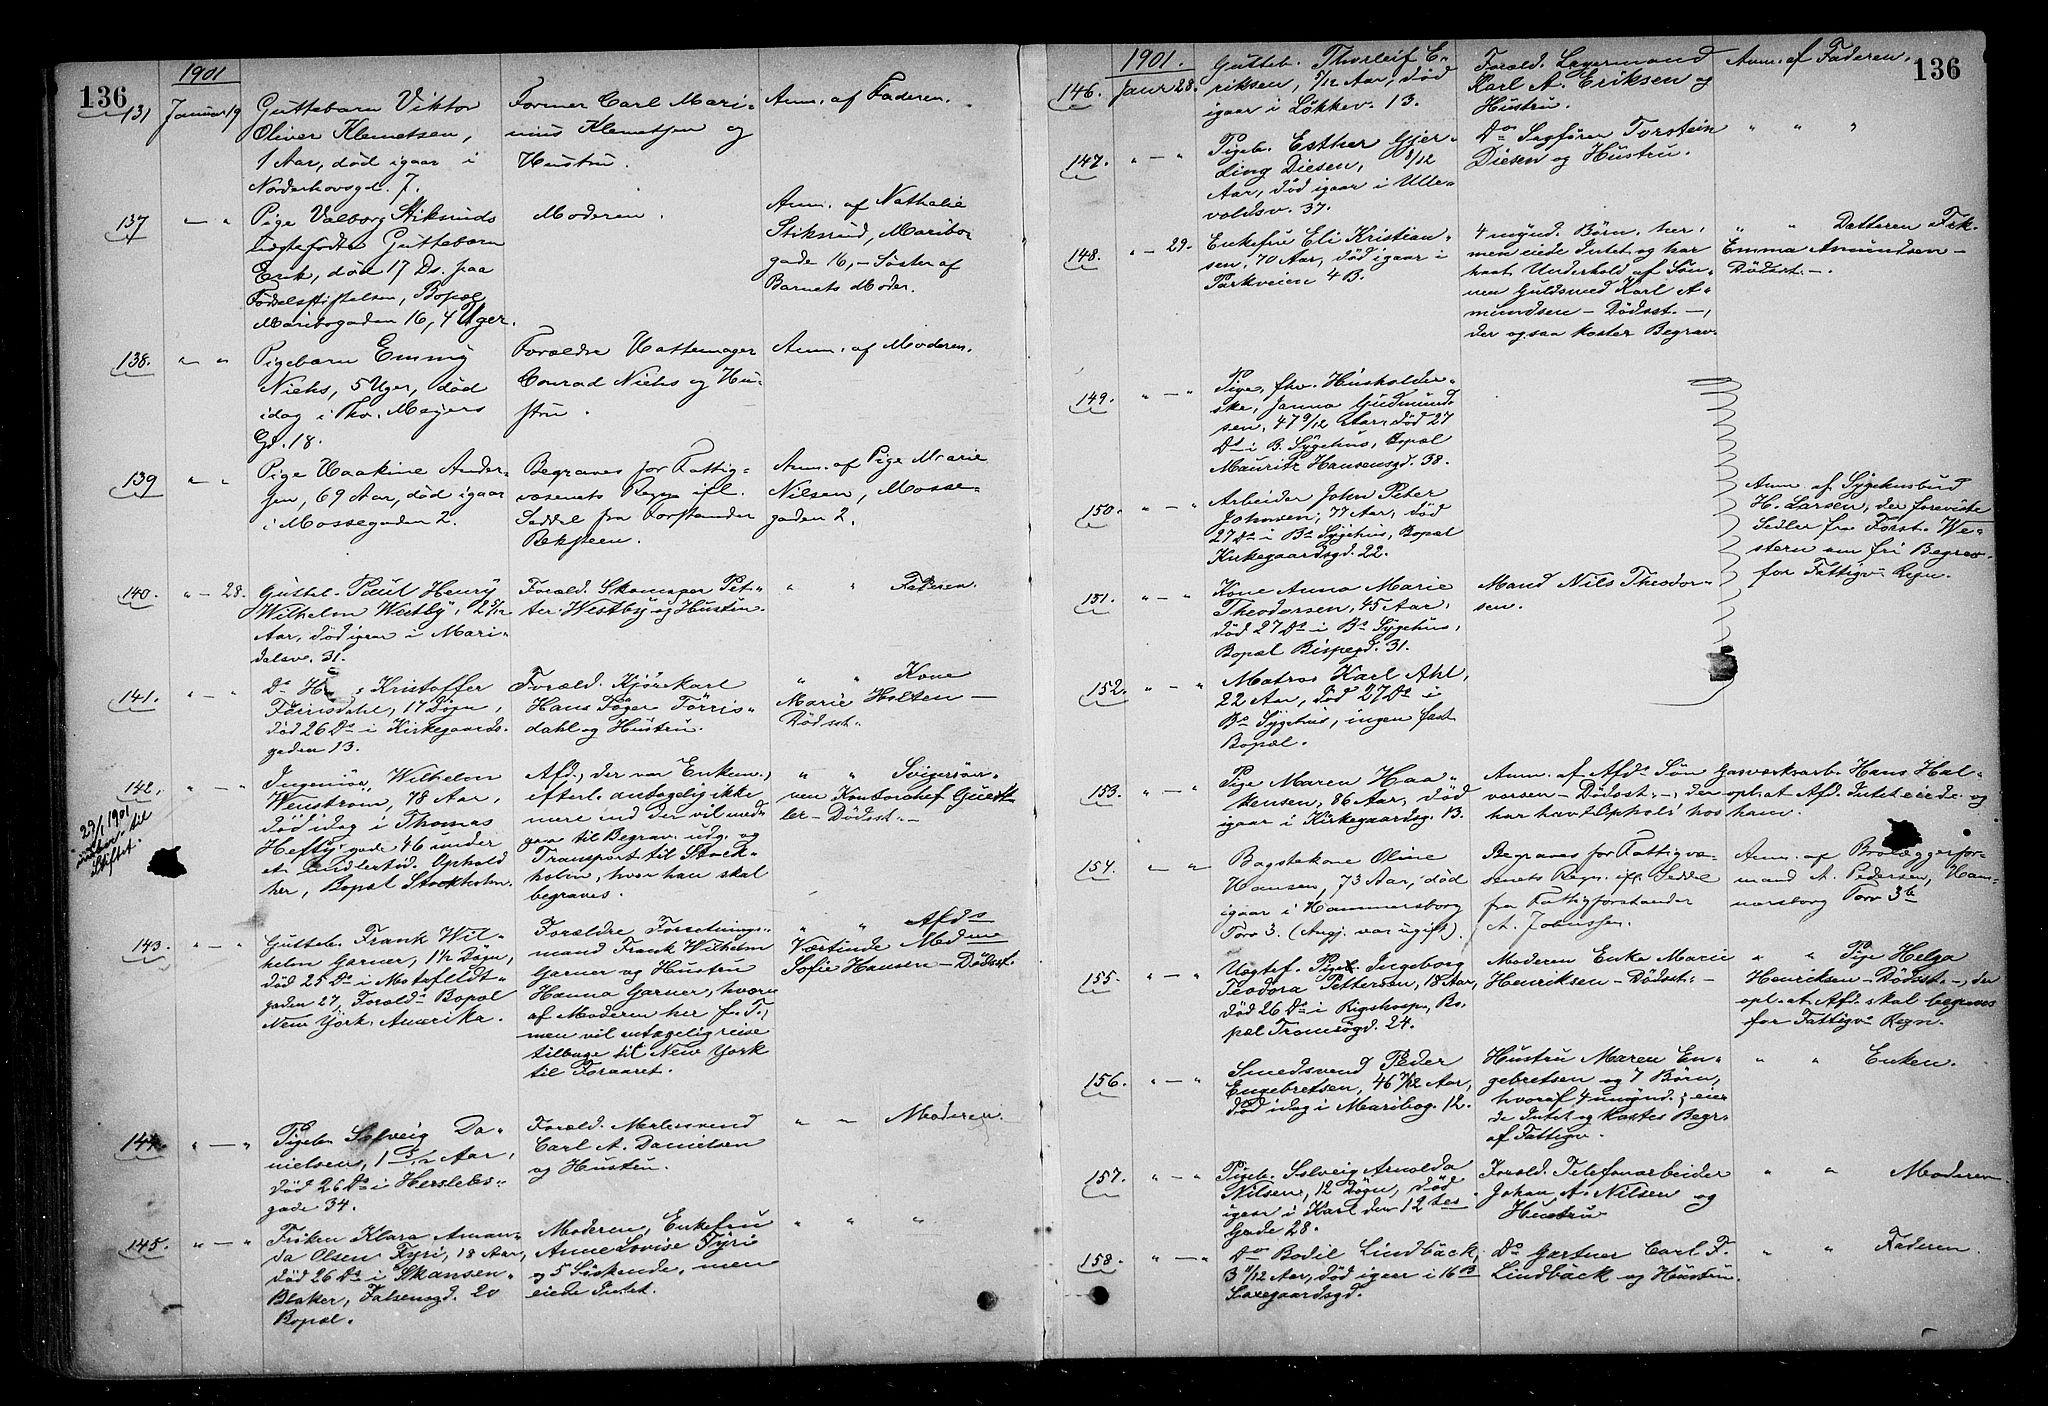 136
1901
131
Januar 19
Guttebarn Viktor
Oliver Klemetsen,
1 Aar, død igaar i
Norderhovsgd. 7.
Former Carl Mari-
nius Klemetsen og
Hustru.
Anm. af Faderen.
137
" — "
Pige Valborg Stiksruds
uægtefødte Guttebarn
Erik, død 17 Ds. paa
Fødselsstiftelsen, Bopæl
Maribogaden 16, 4 Uger.
Moderen.
Anm. af Nathalie
Stiksrud, Maribo-
gade 16, - Søster af
Barnets Moder.
138.
" "
Pigebarn Emmy
Niehs, 5 Uger, død
idag i Thv. Meyers
Gd. 18.
Forældre Hattemager
Conrad Niehs og Hu-
stru.
Anm. af Moderen.
139
" "
Pige Haakine Ander-
sen, 69 Aar, død igaar
i Mossegaden 2.
Begraves for Fattig-
væsenets Regn. ifl.
Seddel fra Forstander
Beksteen.
Anm. af Pige Marie
Nilsen, Mosse-
gaden 2.
140.
" - 28.
Gutteb. Paul Henry
Wilhelm Westby, 2
Aar, død igaar i Mari-
dalsv. 31.
Foræld. Skomager Pet-
ter Westby og Hustru.
" " Faderen.
141.
" - "
Do Kristoffer
Førrisdahl, 17 Døgn,
død 26 Ds i Kirkegaards-
gaden 13.
Foræld. Kjørekarl
Hans Tøger Førris-
dahl og Hustru.
" " Kone
Marie Holten —
Dødsst.-
142.
29/1 1901
til
Stiftet.
" - "
Ingeniør, Wilhelm
Wenstrøm, 78 Aar,
død idag i Thomas
Heftys gade 46 under
et midlertid. Ophold
her, Bopæl Stockholm.
Afd., der var Enkem.,
efterl. antagelig ikke
mere ind der vil med-
gaa til Begrav. udg. og
Transport til Stock-
holm, hvor han skal
begraves.
" " Svigersøn-
nen Kontorchef
- Dødsst. -
143.
" - "
Gutteb. Frank Wil-
helm Garner, 1½ Døgn,
død 25 Ds i Motzfeldt-
gaden 27, Foræld. Bopæl
New York, Amerika.
Forældre Forretnings-
mand Frank Wilhelm
Garner og Hustru
Hanna Garner, hvoraf
af Moderen her f. T.,
men vil antagelig reise
tilbage til New York
til Foraaret.
" " Afds
Værtinde Mdme
Sofie Hansen - Dødsst.
144.
" — "
Pigeb. Solveig Da-
nielsen, 1 Aar,
død 26 Ds i Herslebs-
gade 34.
Foræld. Melersvend
Carl A. Danielsen
og Hustru.
" " Moderen.
145.
" - "
Frøken Klara Aman-
da Olsen Fyri, 18 Aar,
død 26 Ds i Skansen-
Blaker, Falsensgd. 20
Bopæl.
Moderen, Enkefru
Anne Lovise Fyrie
og 5 Søskende, men
eiede Intet.
" " "
136
1901.
146.
Janr 28.
Gutteb. Thorleif E-
riksen, 5/12 Aar, død
igaar i Løkkev. 13.
Foræld. Lagermand
Karl A. Eriksen og
Hustru.
Anm. af Faderen.
147.
" — "
Pigeb. Esther Gjer-
ding Diesen, 8/12
Aar, død igaar i Ulle-
voldsv. 37.
Do Sagfører Torstein
Diesen og Hustru.
" " "
148.
" - 29.
Enkefru Eli Kristian-
sen, 70 Aar, død igaar i
Parkveien 4 B.
4 mynd. Børn, her;
men eiede Intet og har
havt Underhold af Søn-
nen Guldsmed Karl A-
mundsen - Dødsst. -,
der ogsaa koster Begrav.
" " Datteren Frk.
Emma Amundsen -
Dødsst. -.
149.
" — "
Pige, fhv. Husholder-
ske, Janna Gudmund-
sen, 47 9/12 Aar, død 27
Ds i B. Sygehus, Bopæl
Mauritz Hansensgd. 38.
150.
" — "
Arbeider John Peter
Johnsen, 77 Aar, død
27 Ds i Bs Sygehus, Bopæl
Kirkegaardsgd. 22.
Anm. af Sygehusbud
H. Larsen, der foreviste
Sedler fra Forst. We-
stern om fri Begrav.
for Fattigv. Regn.
151.
" — "
Kone Anna Marie
Theodorsen, 45 Aar,
død 27 Ds i Bs Sygehus,
Bopæl Bispegd. 31.
Mand Nils Theodor-
sen.
152.
" - "
Matros Karl Ahl,
22 Aar, død 27 Ds i
Bs Sygehus, ingen fast
Bopæl.
153.
" - "
Pige Maren Haa-
kensen, 86 Aar, død
igaar i Kirkegaardsg. 13.
Anm. af Afds Søn Gasværksarb. Hans Hal-
vorsen - Dødsst. -, der opl. at Afd. Intet eiede og
har havt Ophold hos ham.
154.
" — "
Bagstekone Oline
Hansen, 73 Aar, død
igaar i Hammersborg
Torv 3. (Angj. var ugift).
Begraves for Fattigvæ-
senets Regn. ifl. Seddel
fra Fattigforstander
A. Johnssen.
Anm. af Brolæggerfor-
mand A. Pedersen, Ham-
mersborg Torv 3b
155.
" — "
Uægtef. Pige Ingeborg
Teodora Pettersen, 18 Aar,
død 26 Ds i Rigshosp., Bo-
pæl Tromsøgd. 24.
Moderen Enke Marie
Henriksen - Dødsst. -
" " Pige Helga
Henriksen - Dødsst. -, der
opl. at Afd. skal begraves
for Fattigvs Regn.
156.
" — "
Smedsvend Peder
Engebretsen, 46 Aar,
død idag i Maribog. 12.
Hustru Maren En-
gebretsen og 7 Børn,
hvoraf 4 umynd.; eie-
de Intet og kostes Begr.
af Fattigv.
" " Enken.
157.
" — "
Pigeb. Solveig Arnolda
Nilsen, 12 Døgn, død
igaar i Karl den 12 tes
Gade 28.
Foræld. Telefonarbeider
Johan A. Nilsen og
Hustru
" " Moderen.
158.
" — "
Do Bodil Lindbäck,
3 11/12 Aar, død igaar i 16 B
Saxegaardsgd.
Do Gartner Carl F.
Lindbäck og Hustru.
" " Faderen